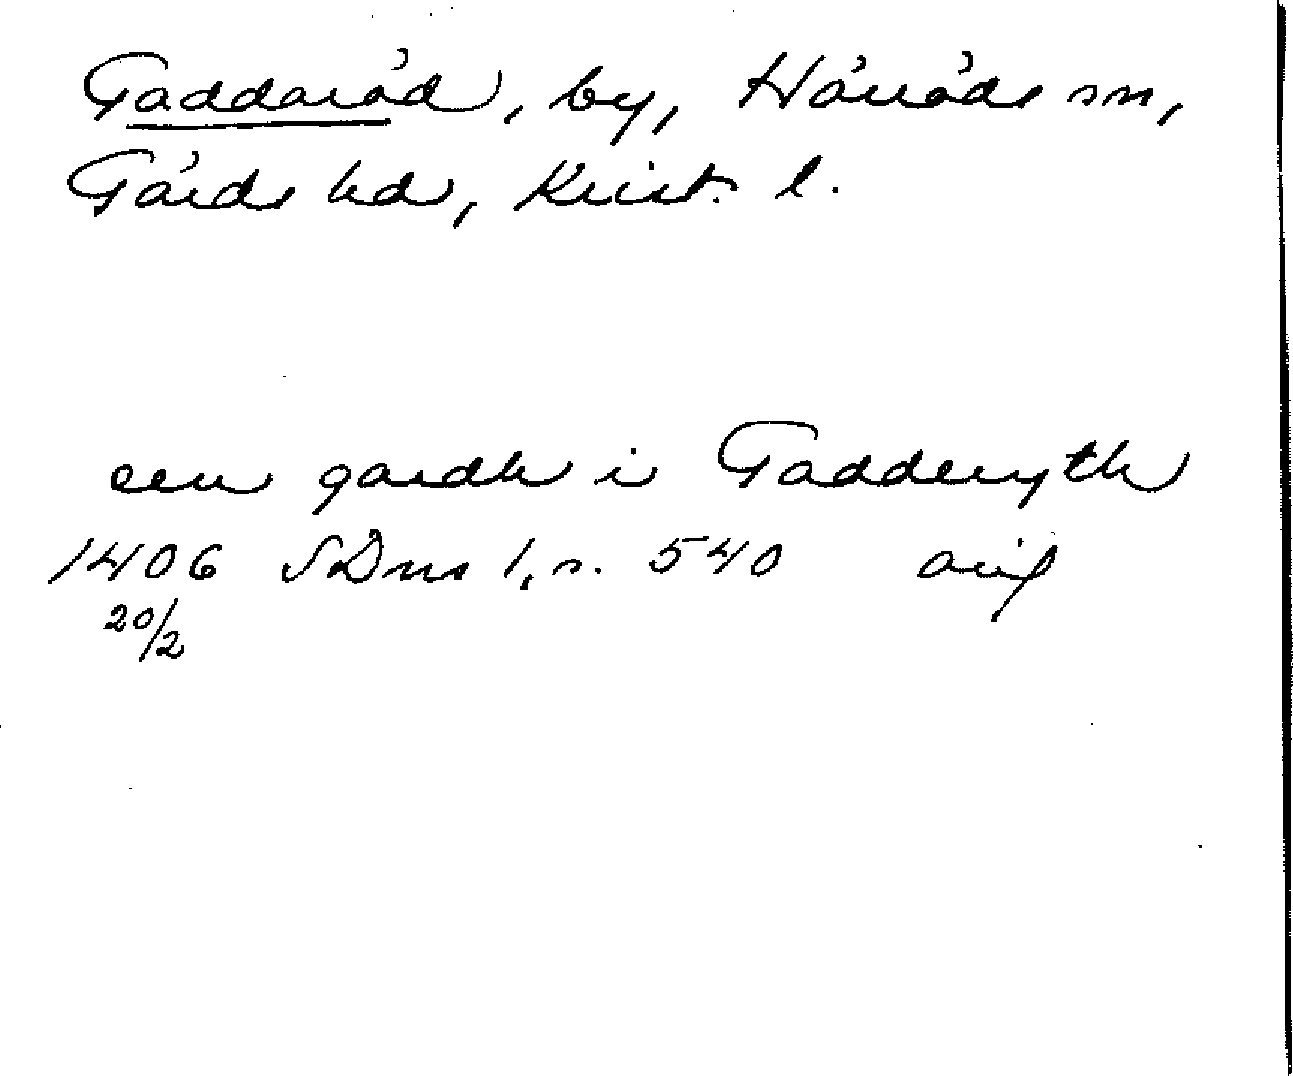 Gaddaröd, by, Hörröds sn,
Gärds hd, Krist. l.
een gardh i Gadderyth
1406 SDns 1, s. 540 avig
20/2